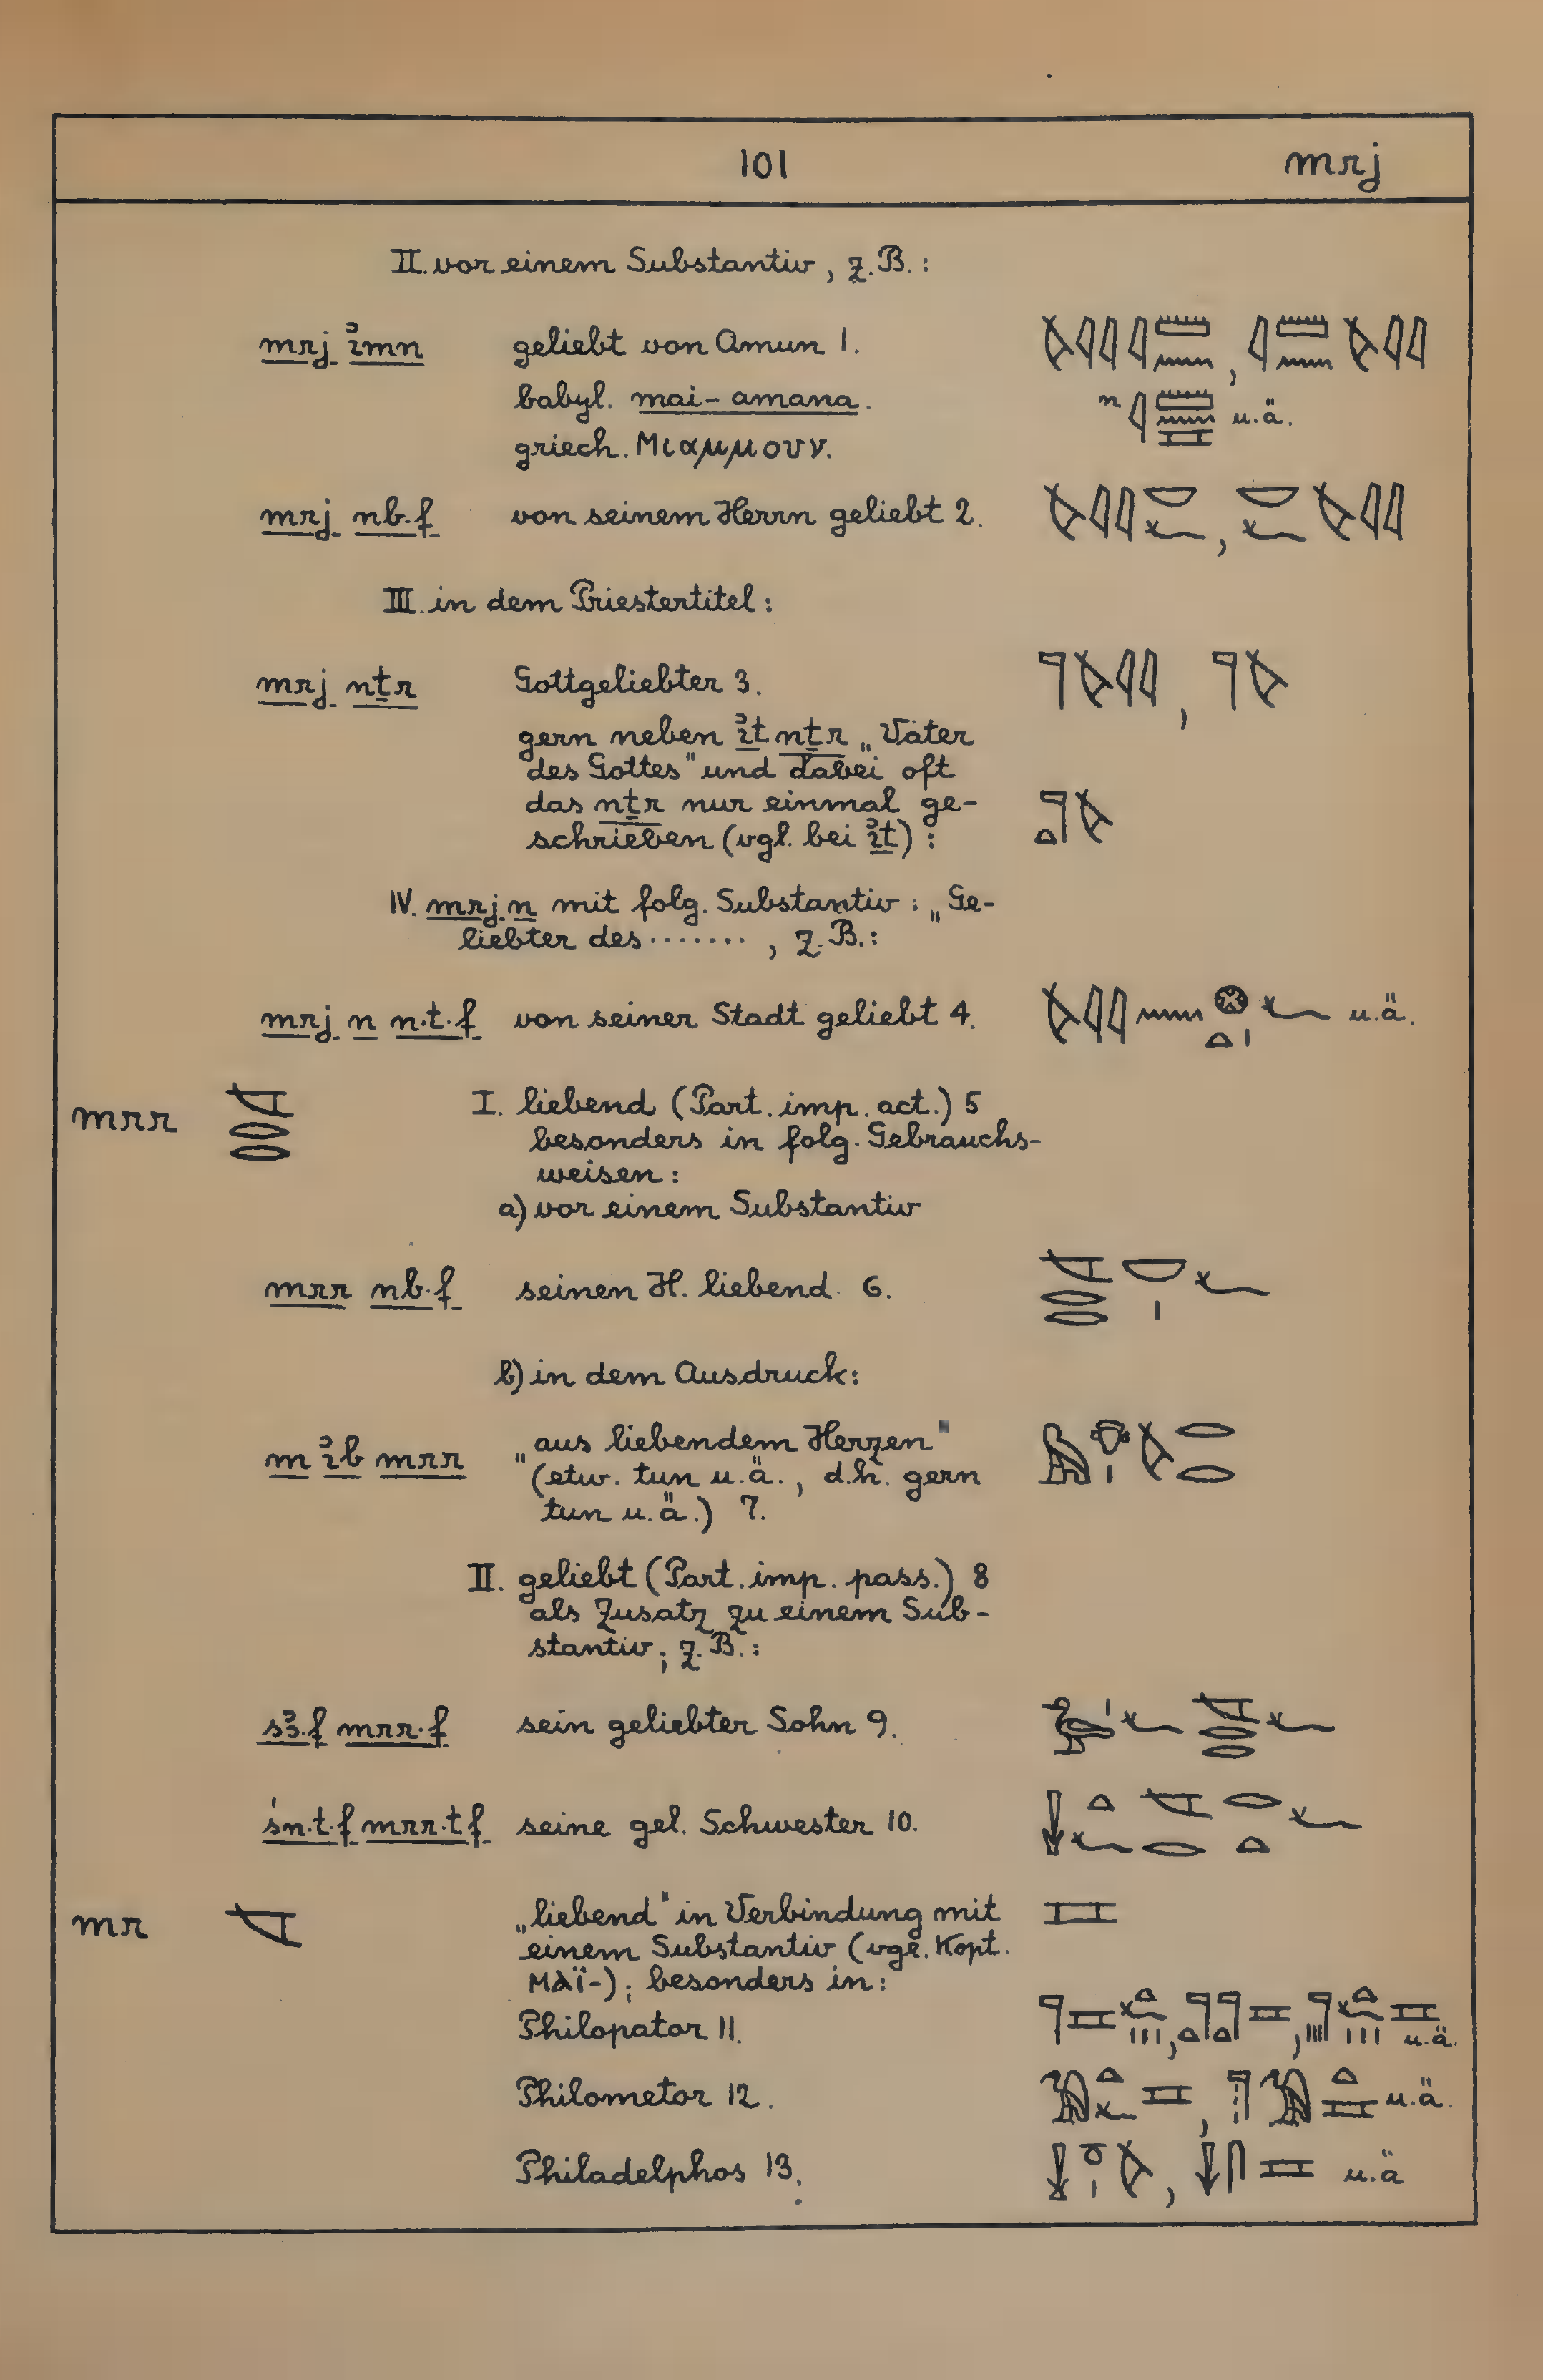 101 mrj
II. vor einem Substantiv, z.B.:
mrj ỉmn geliebt von Amun 1. 𓌻𓇋𓇋𓇋𓏠𓈖, 𓇋𓏠𓈖𓌻𓇋𓇋
babyl. mai-amana. n 𓇋𓏠𓈖𓈘 u.ä.
griech. Μιαμμουν.
mrj nb.f von seinem Herrn geliebt 2. 𓌻𓇋𓇋𓎟𓆑, 𓎟𓆑𓌻𓇋𓇋
III. in dem Priestertitel:
mrj nṯr Gottgeliebter 3. 𓊹𓌻𓇋𓇋, 𓊹𓌻
gern neben ỉt nṯr „Väter
des Gottes" und dabei oft
das nṯr nur einmal ge-
schrieben (vgl. bei ỉt): 𓊹𓏏𓌻
IV. mrj n mit folg. Substantiv: „Ge-
liebter des ......., z.B.:
mrj n n.t.f von seiner Stadt geliebt 4. 𓌻𓇋𓇋𓈖𓊖𓏏𓏤𓆑 u.ä.
mrr 𓌻𓂋𓂋 I. liebend (Part. imp. act.) 5
besonders in folg. Gebrauchs-
weisen:
a) vor einem Substantiv
mrr nb.f seinen H. liebend 6. 𓌻𓂋𓂋𓎟𓏤𓆑
b) in dem Ausdruck:
m ỉb mrr „aus liebendem Herzen" 𓅓𓄣𓏤𓌻𓂋𓂋
(etw. tun u.ä., d.h. gern
tun u.ä.) 7.
II. geliebt (Part. imp. pass.) 8
als Zusatz zu einem Sub-
stantiv; z.B.:
sꜣ.f mrr.f sein geliebter Sohn 9. 𓅭𓏤𓆑𓌻𓂋𓂋𓆑
śn.t.f mrr.t f seine gel. Schwester 10. 𓌢𓏏𓆑𓌻𓂋𓂋𓏏𓆑
mr 𓌻 „liebend" in Verbindung mit 𓈘
einem Substantiv (vgl. Kopt.
ⲙⲁⲓ̈-); besonders in:
Philopator 11. u.ä.
Philometor 12. u.ä.
Philadelphos 13. u.ä